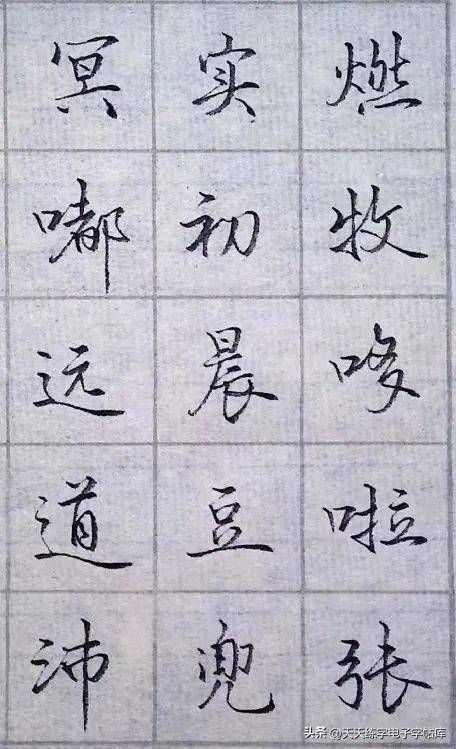 冥实燃
嘟初牧
远晨哆
道豆啦
沛兜张
头条@天天练字电子字帖库